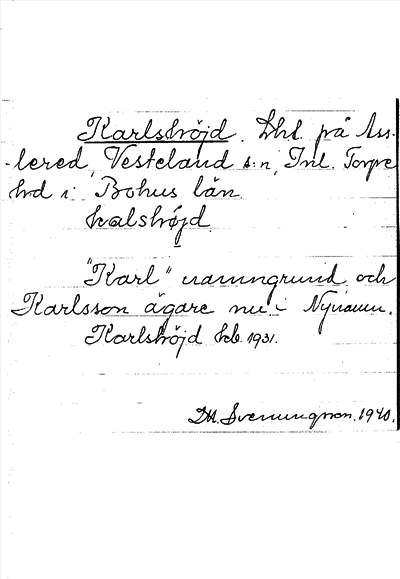 Karlshöjd. Lht. på Ass-
-lered, Vesteland s:n, Inl. Torpe
hrd i Bohus län
kalshöjd
"Karl" namngrund och
Karlsson ägare nu i Nynamn.
Karlshöjd kb. 1931.
DM. Svenungson. 1940.